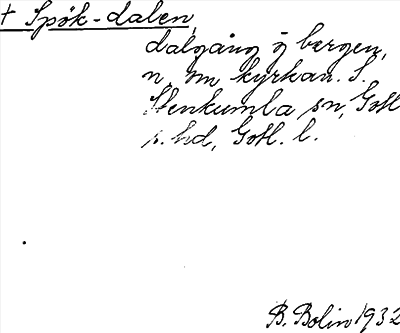 † Spök-dalen,
dalgång i bergen,
n. om kyrkan. S.
Stenkumla sn, Gotl.
s. hd, Gotl. l.
B. Bolin 1932